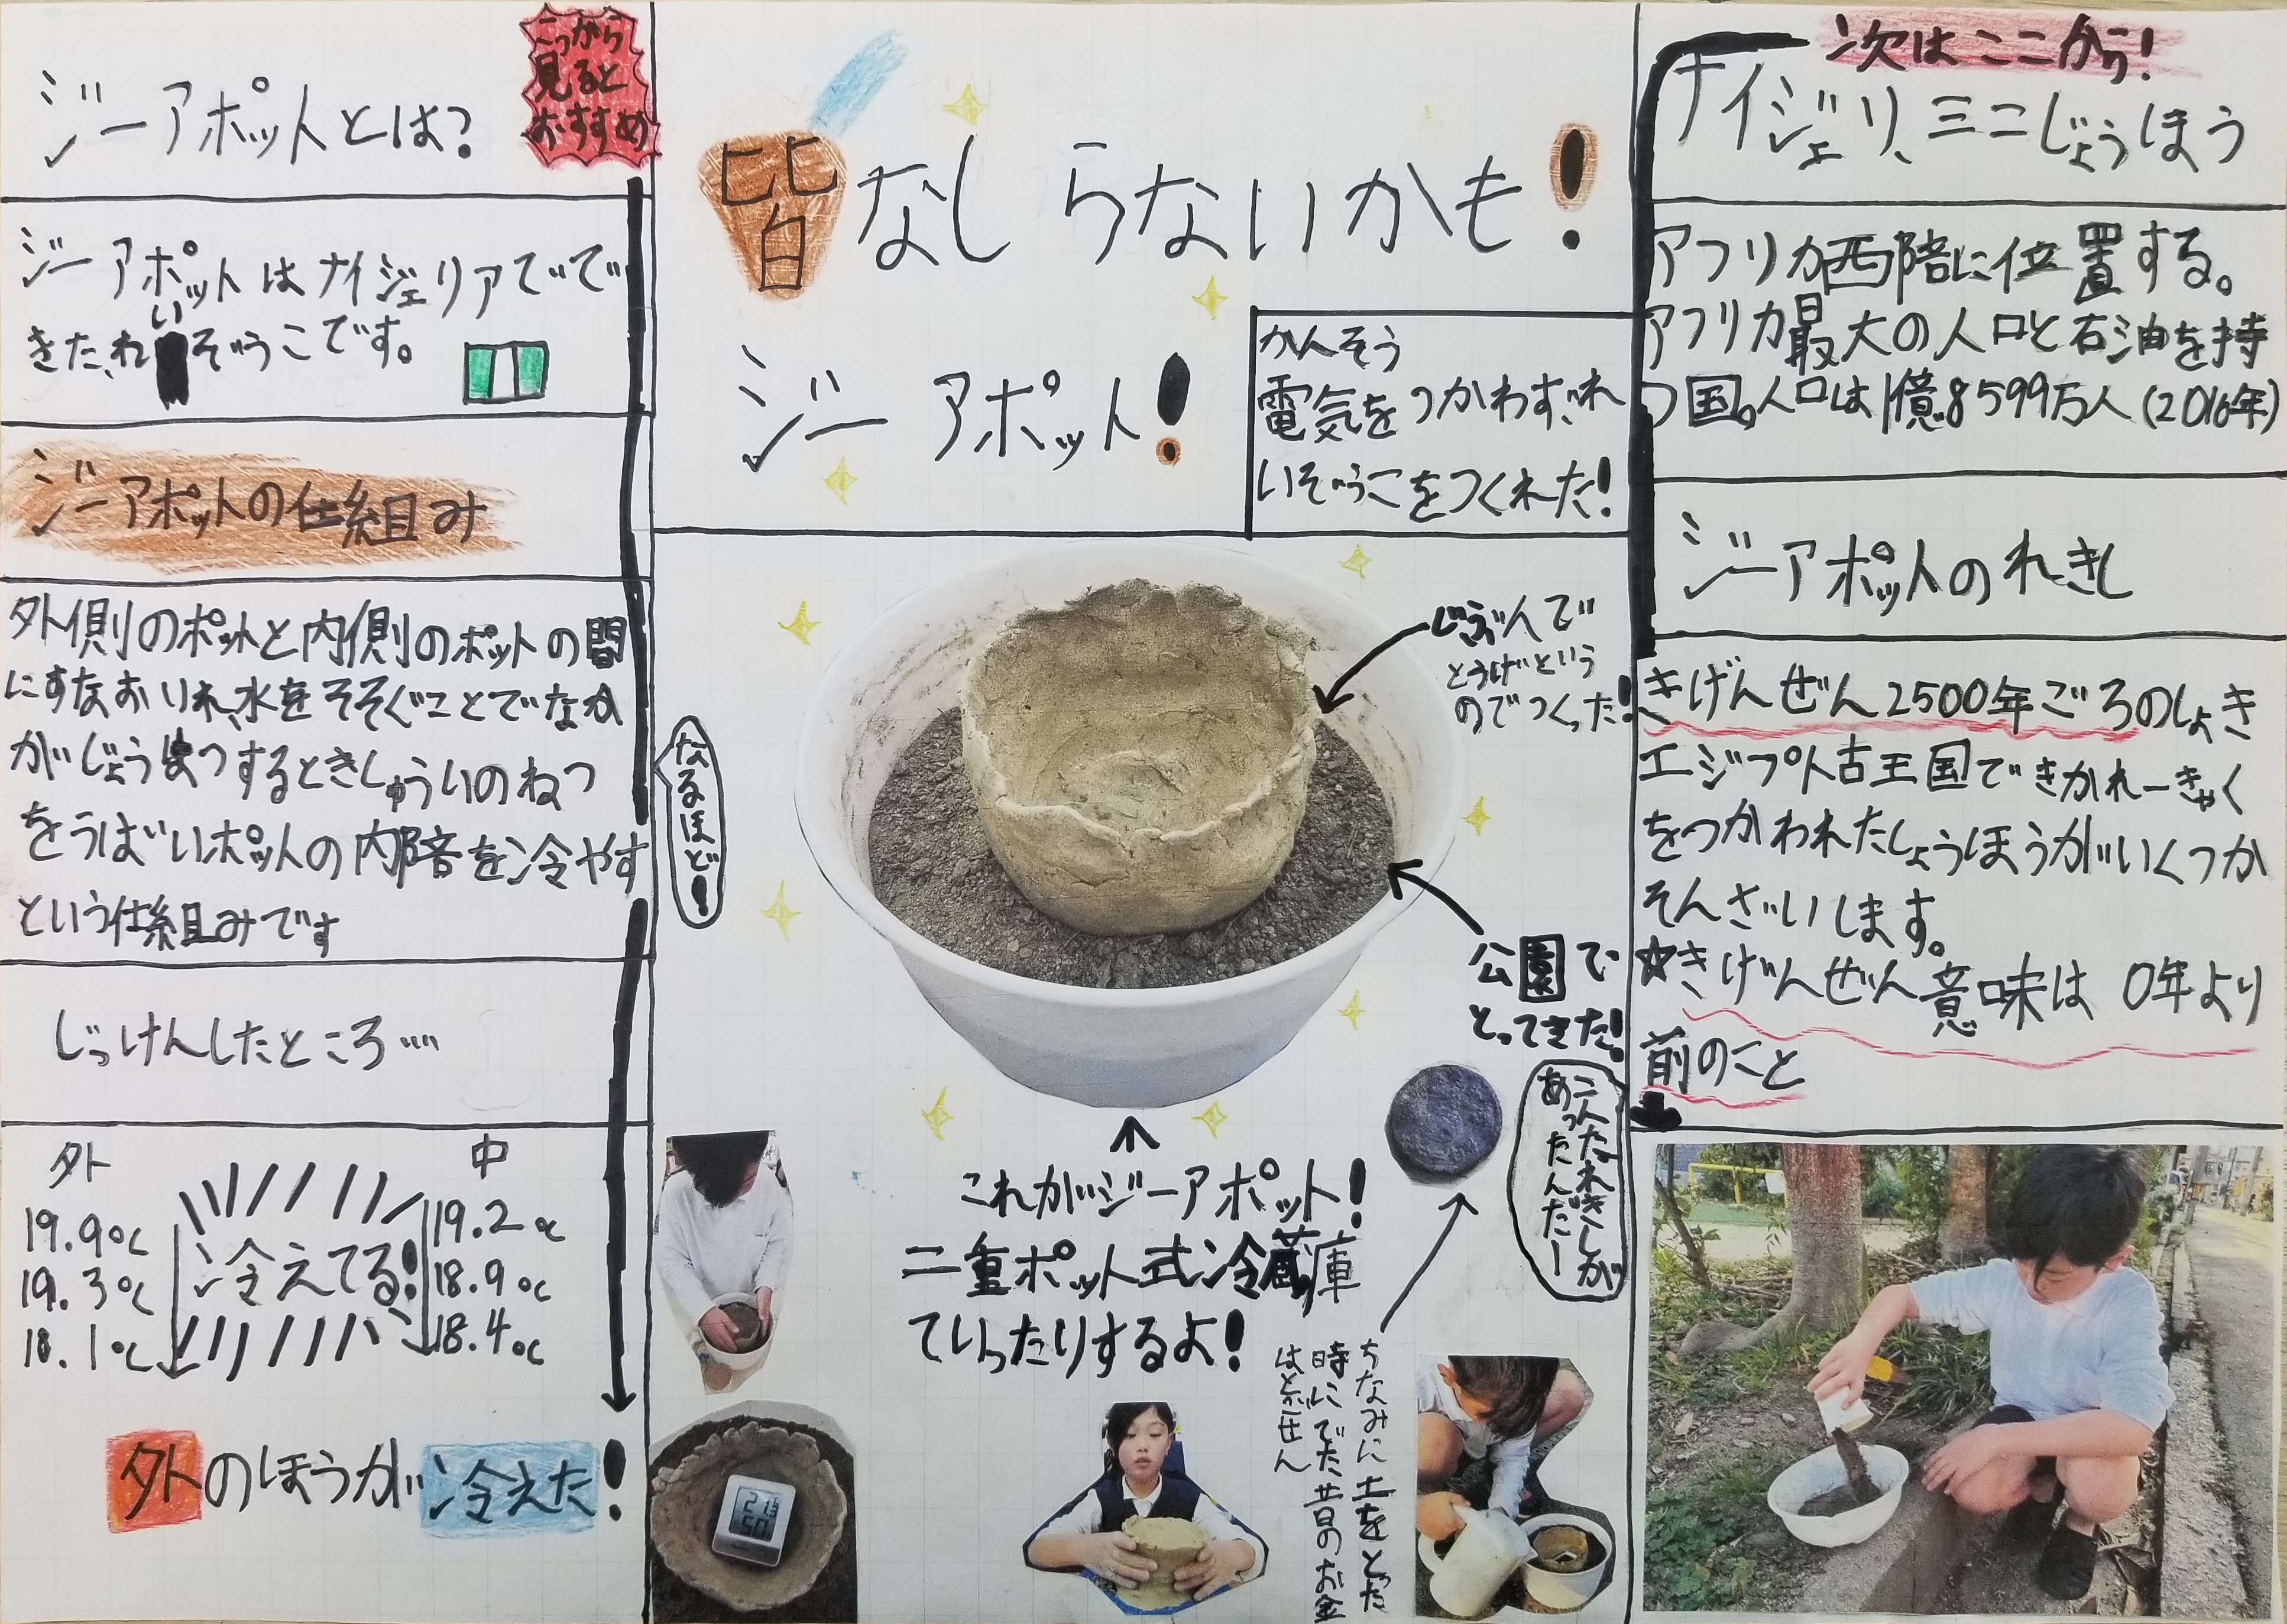 こっから
見ると
おすすめ
ジーアポットとは?
ジーアポットはナイジェリアでで
きた、れいぞうこです。
ジーアポットの仕組み
外側のポットと内側のポットの間
にすなおいれ、水をそそぐことでなか
がじょうはつするときしゅういのねつ
をうばいポットの内陪を冷やす
という仕組みです
なるほど!
じっけんしたところ…
外
中
19.9℃
19.3℃
18.1℃
冷えてる!
19.2℃
18.9℃
18.4℃
外のほうが冷えた!
皆なしらないかも!
ジーアポット!
かんそう
電気をつかわず、れ
いぞうこをつくれた!
じぶんで
とうげいという
のでつくった!
公園で
とってきた!
これがジーアポット!
二重ポット式冷蔵庫
ていったりするよ!
こんなれきしが
あったんだー
ちなみに土をとった
時にでた昔のお金
はとが圧ん
21.3
50
次はここから!
ナイジェリ、ミニじょうほう
アフリカ西陪に位置する。
アフリカ最大の人口と石油を持
つ国。人口は1億8599万人(2016年)
ジーアポットのれきし
きげんぜん2500年ごろのしょき
エジプト古王国できかれーきゃく
をつかわれたしょうほうがいくつか
そんざいします。
☆きげんぜん意味は0年より
前のこと